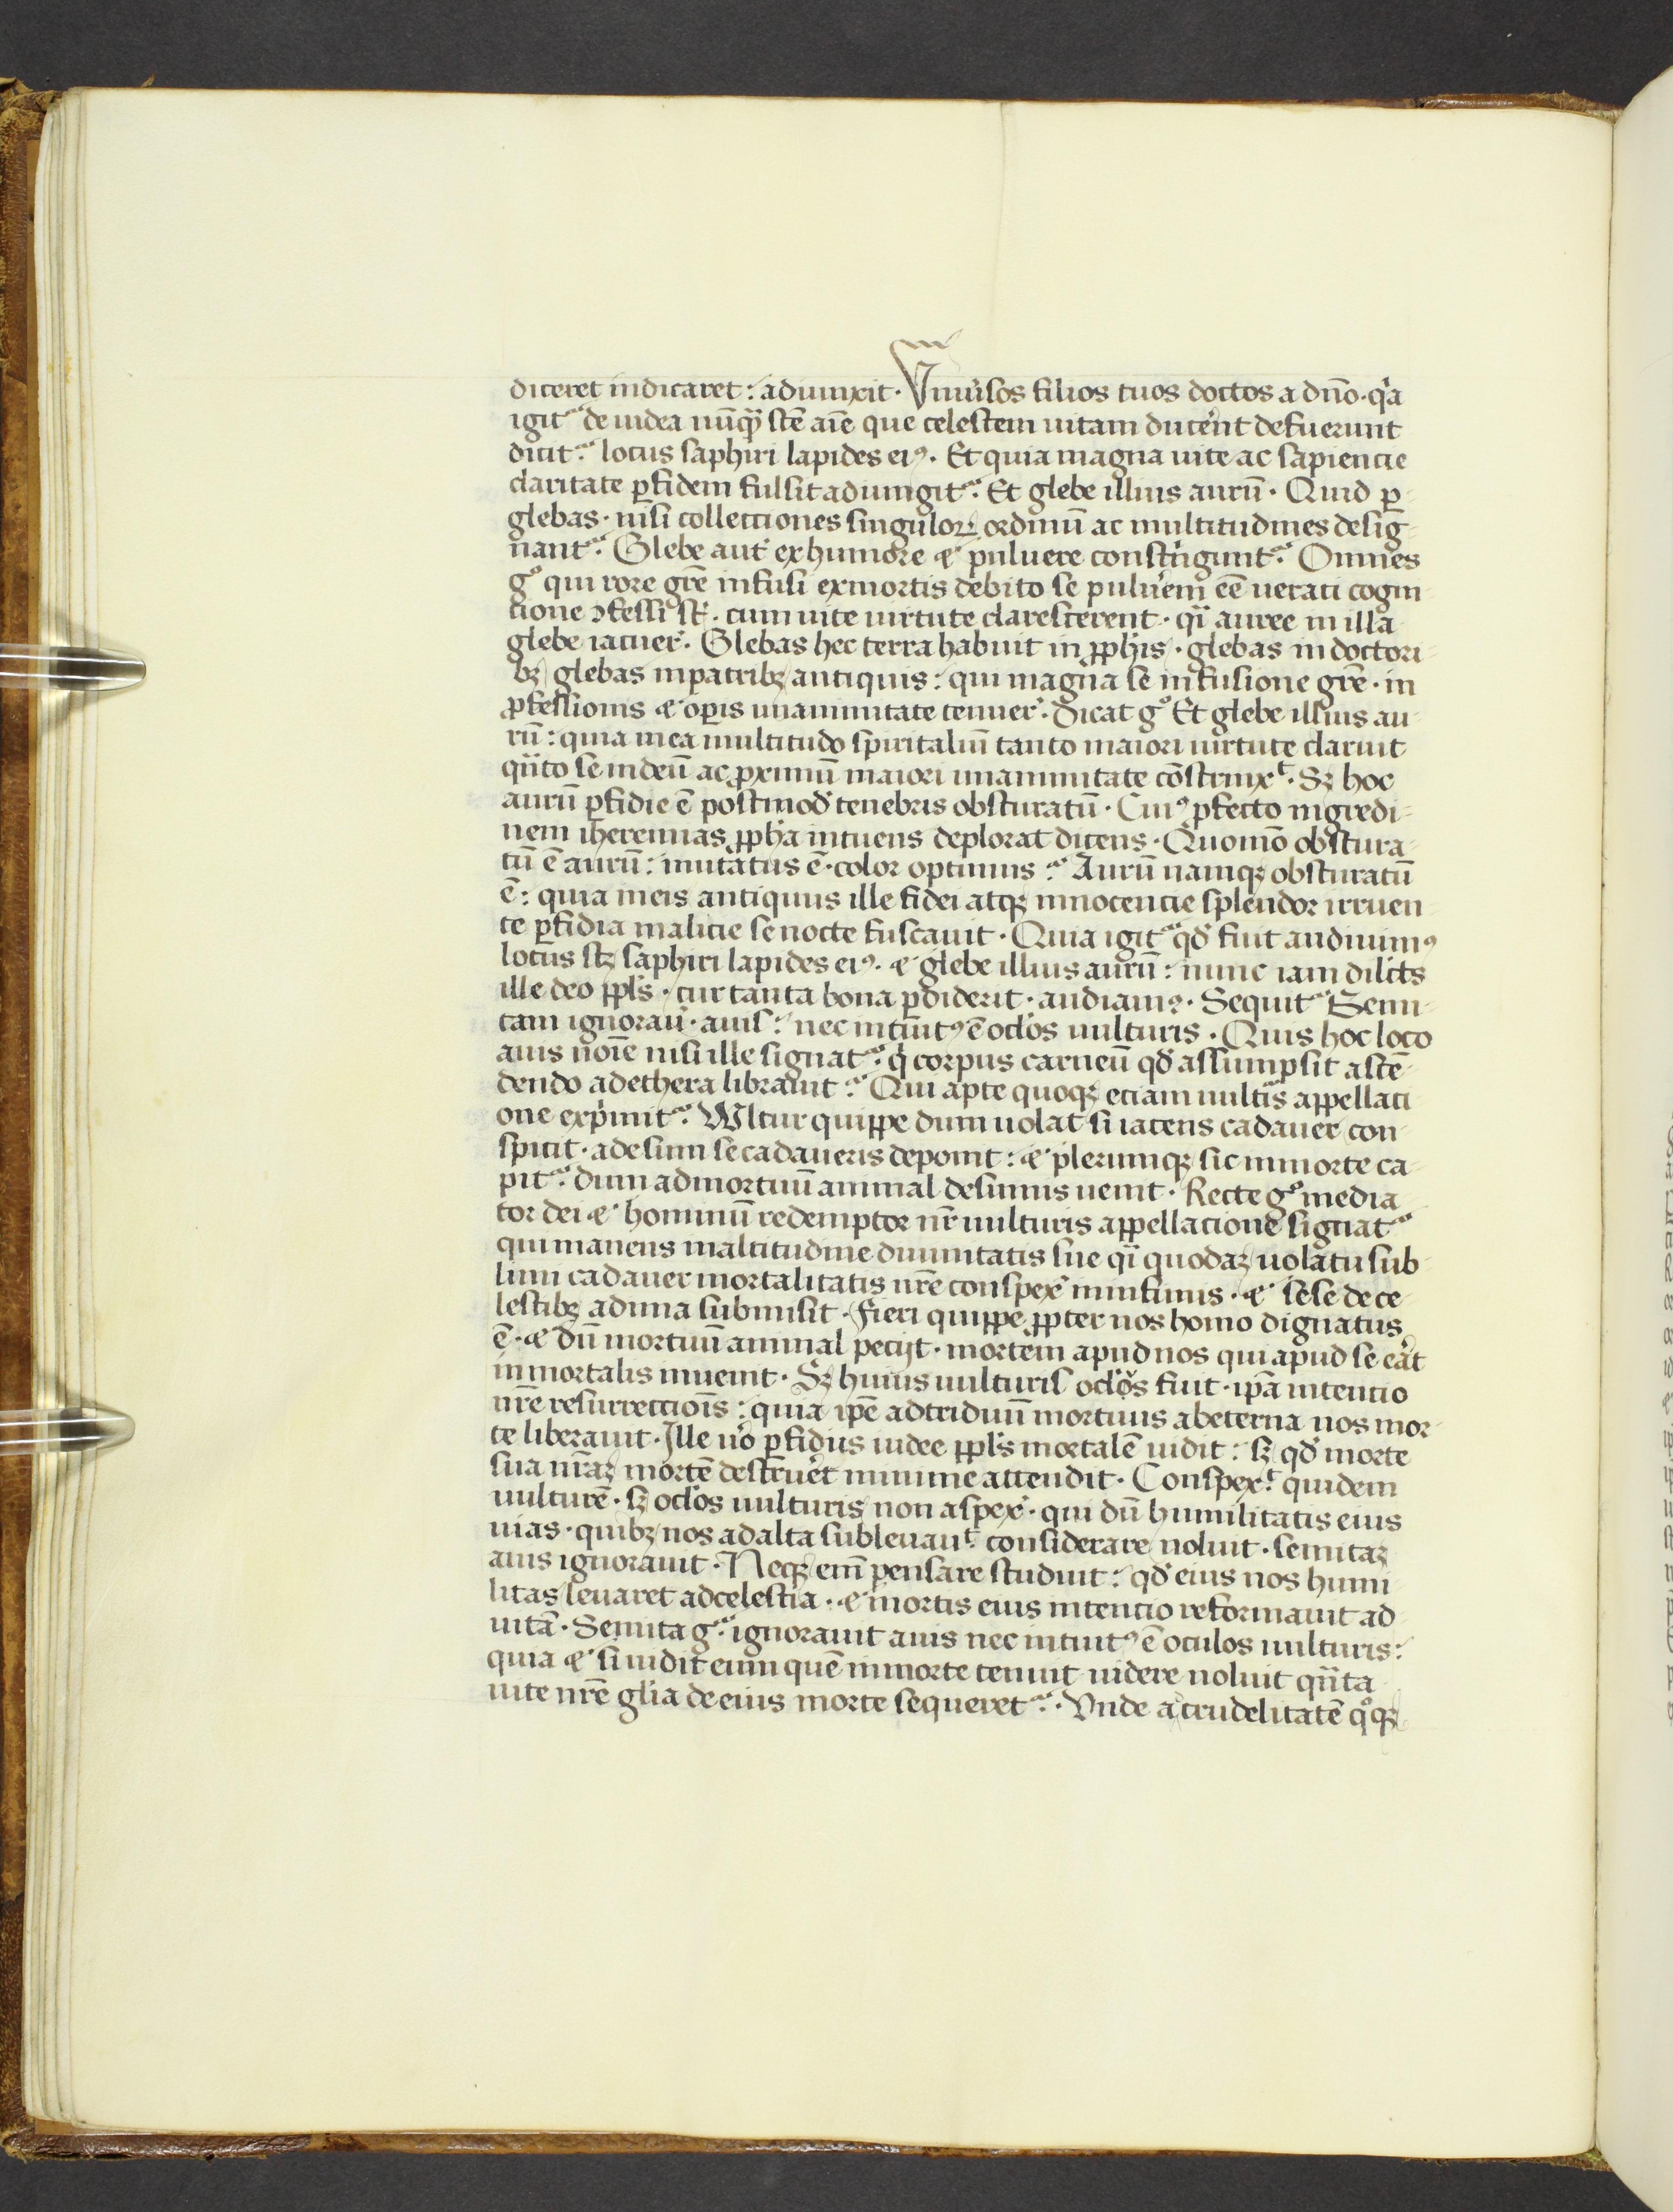 diceret indicaret: adiunxit· Vniu̾sos filios tuos doctos a dn̄o· q̇a
igit᷑ de iudea nūq̄ scē aīe que celestem uitam duce̾nt defuerunt
dicit᷑· locus saphiri lapides eiꝰ· Et quia magna uite ac sapiencie
claritate ꝑfidem fulsit adiungit᷑· Et glebe illius aurū· Quid ꝑ
glebas· nisi collectiones singuloꝝ ordinū ac multitudines desig-
nant᷑· Glebe aut̄ ex humore ⁊ puluere constringunt᷑· Omnes
gͦ qui rore grē infusi ex mortis debito se pulue̾em eē ueraci cogni-
tione ꝯfessi st̄· cum uite uirtute clarescerent· q̄i auree in illa
glebe iacuer̄· Glebas hec terra habuit in ꝓphis· glebas in doctori-
bꝫ glebas in patribꝫ antiquis: qui magna se infusione grē· in
ꝓfessionis ⁊ oꝑis unanimitate tenuer̄· Dicat gͦ Et glebe illius au-
rū: quia in ea multitudo spiritaliū tanto maiori uirtute claruit
qn̄to se in deū ac ꝓximū maiori unanimitate cōstrinxᵗ· Sꝫ hoc
aurū ꝑfidie ē postmod̄ tenebris obscuratū· Cuiꝰ ꝓfecto nigredi-
nem iheremias ꝓpha intuens deplorat dicens· Quomō obscura-
tū ē aurū: mutatus ē· color optimus᷑ Aurū namqꝫ obscuratū
ē: quia in eis antiquus ille fidei atqꝫ innocencie splendor irruen-
te ꝑfidia malicie se nocte fuscauit· Quia igit᷑ qd̄ fuit audiuimꝰ
locus scꝫ saphiri lapides eiꝰ· ⁊ glebe illius aurū: nunc iam dilc̄s
ille deo ppl̄s· cur tanta bona ꝑdiderit· audiamꝰ· Sequit᷑ Semi-
tam ignorau̾· auis: nec intuitꝰ ē oclōs uulturis· Quis hoc loco
auis noīe nisi ille signat᷑· q̇ corpus carneū qd̄ assumpsit ascē-
dendo ad ethera librauit᷑ Qui apte quoqꝫ etiam uultꝰis appellaci-
one exṗmit᷑ Wltur quippe dum uolat si iacens cadauer con-
spicit· ad esum se cadaueris deponit: ⁊ plerumqꝫ sic in morte ca-
pit᷑· dum ad mortuū animal de summis uenit· Recte gͦ media-
tor dei ⁊ hominū redemptor nr̄ uulturis appellatione signat᷑
qui manens in altitudine diuinitatis sue q̄i quodaꝫ uolatu sub-
limi cadauer mortalitatis nrē conspex̄ in infimis· ⁊ sese de ce-
lestibꝫ ad ima submisit· Fieri quippe ꝓpter nos homo dignatus
ē· ⁊ dū mortuū animal petijt· mortem apud nos qui apud se erat
inmortalis inuenit· Sꝫ huius uulturis oclōs fuit· ip̄a intentio
nrē resurrectiōis: quia ip̄e ad triduū mortuus ab eterna nos mor-
te liberauit· Ille ūo ꝑfidus iudee ppl̄s mortalē uidit: sꝫ qd̄ morte
sua nr̄aꝫ mortē destrue̾t minime attendit· Conspexᵗ quidem
uulturē· sꝫ oclōs uulturis non aspex̄· qui dū humilitatis eius
uias· quibꝫ nos ad alta subleuauᵗ considerare noluit· semitaꝫ
auis ignorauit· Neqꝫ em̄ pensare studuit: qd̄ eius nos humi-
litas leuaret ad celestia· ⁊ mortis eius intentio reformauit ad
uitā· Semita gͦ ignorauit auis nec intuitꝰ ē oculos uulturis:
quia ⁊ si uidit eum quē in morte tenuit uidere noluit qn̄ta
uite nrē glīa de eius morte sequeret᷑· Vnde a crudelitatē qͦqꝫ